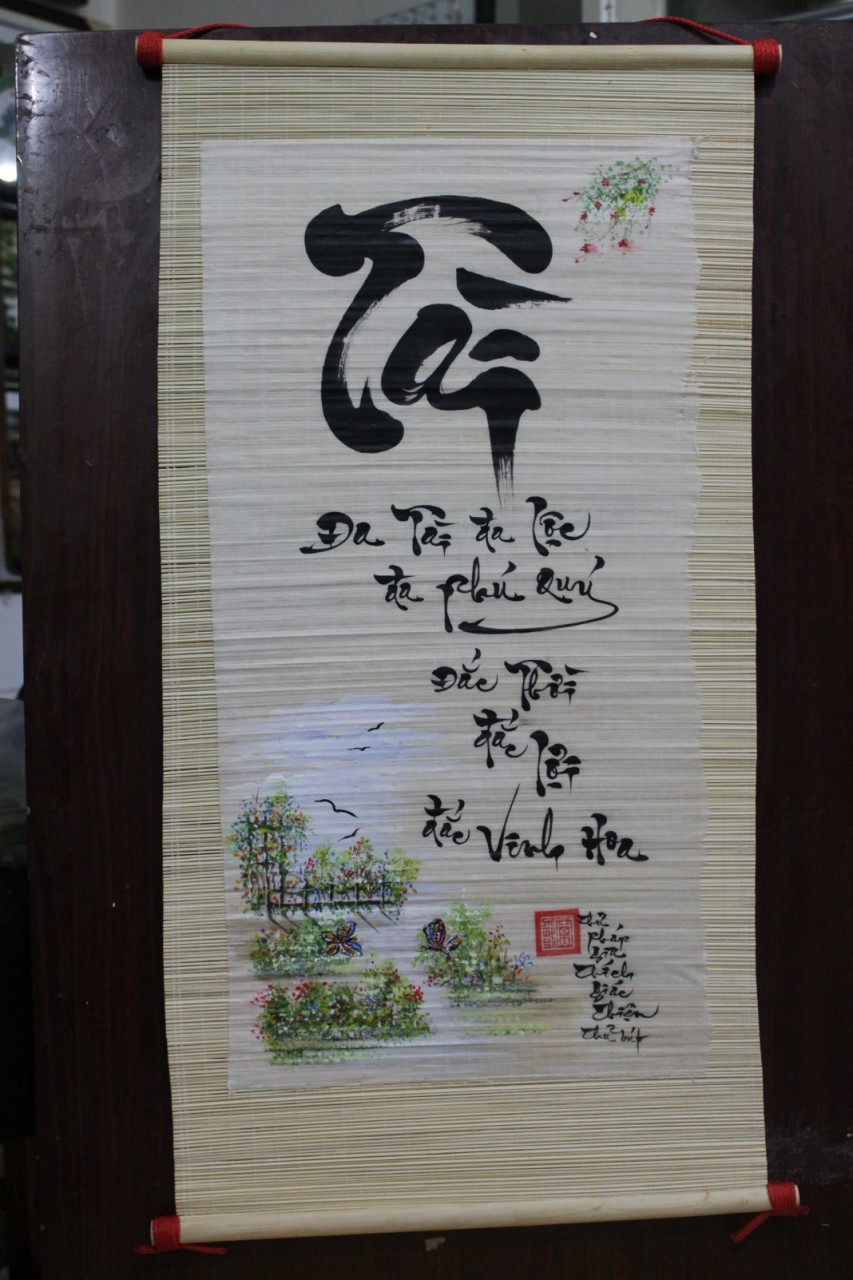 Tài
Đa Tài đa Lộc
đa phú Quý
Đắc Thời
đắc
Lợi
đắc Vinh Hoa
thư
pháp
gia
thích
giác
thiện
thủ bút